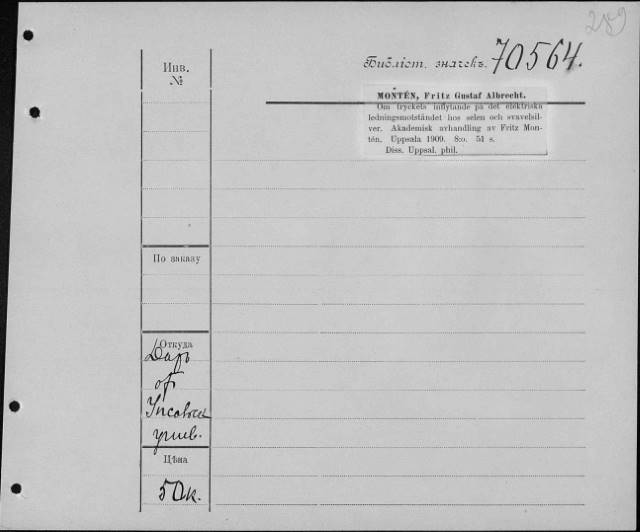 289
Библіот. значекъ. 70564.
Инв.
№
MONTÉN, Fritz Gustaf Albrecht.
Om tryckets inflytande på det elektriska
ledningsmotståndet hos selen och svavelsil-
ver. Akademisk avhandling av Fritz Mon-
tén. Uppsala 1909. 8:o. 51 s.
Diss. Uppsal. phil.
По заказу
Откуда
Даръ
от
Упсальск
унив.
Цѣна
50 к.